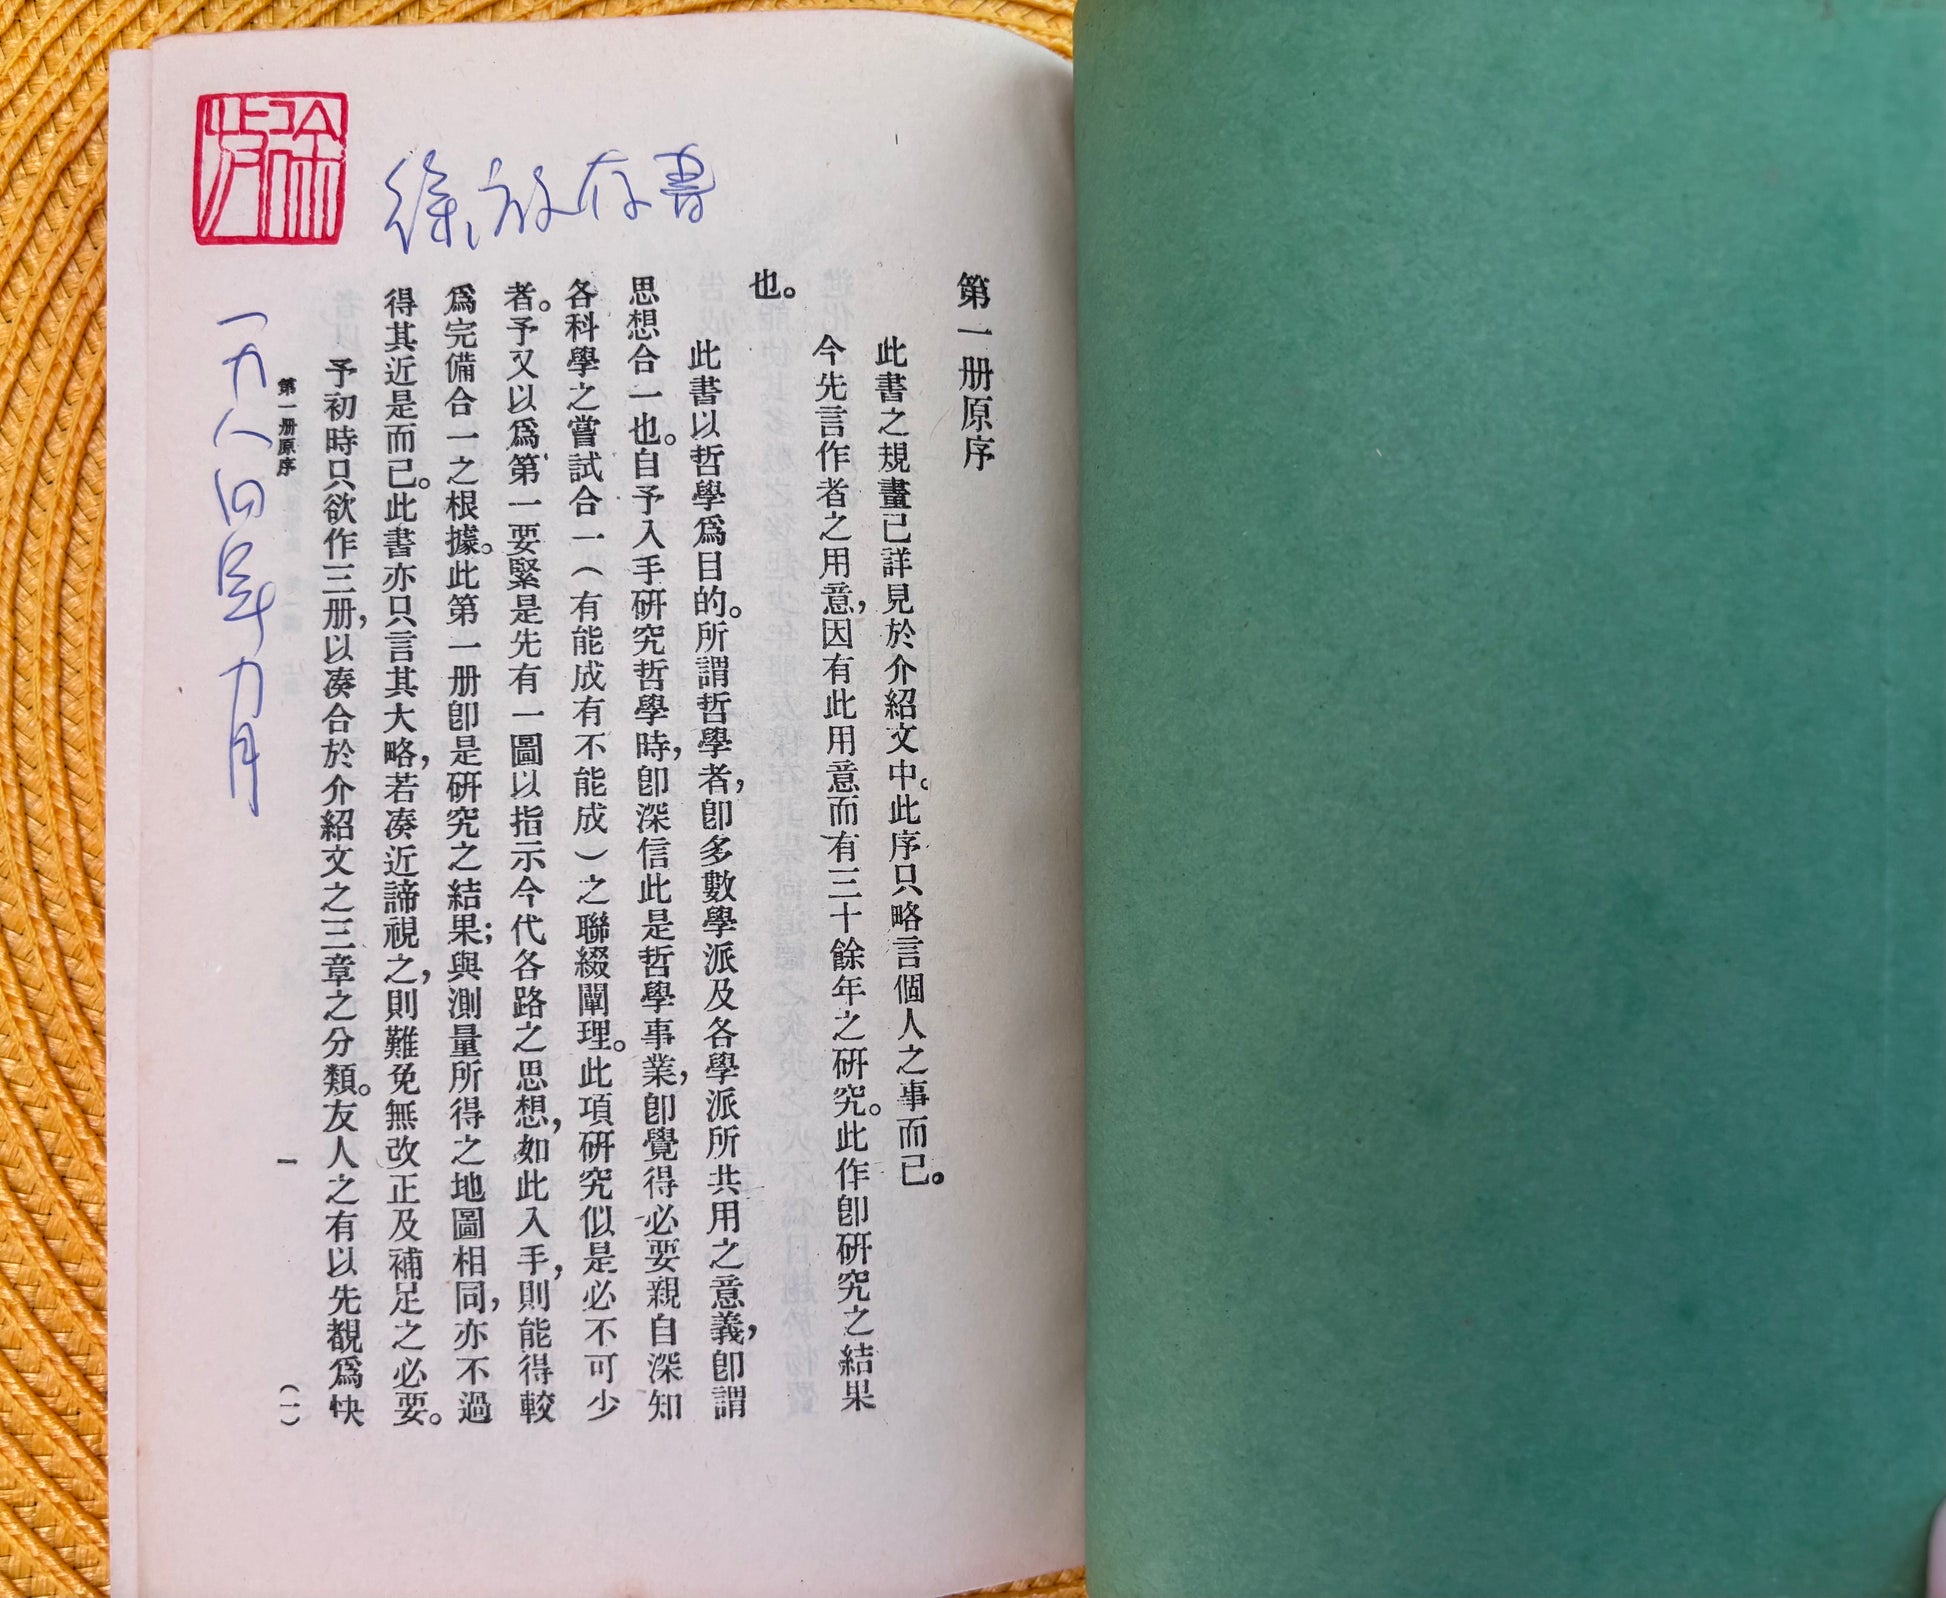 徐放
徐放存書
一九八四年九月
第一册原序
此書之規畫已詳見於介紹文中。此序只略言個人之事而已。
今先言作者之用意，因有此用意而有三十餘年之研究。此作卽研究之結果
也。
此書以哲學爲目的。所謂哲學者，卽多數學派及各學派所共用之意義，卽謂
思想合一也。自予入手研究哲學時，卽深信此是哲學事業，卽覺得必要親自深知
各科學之嘗試合一（有能成有不能成）之聯綴闡理。此項研究似是必不可少
者。予又以爲第一要緊是先有一圖以指示今代各路之思想，如此入手，則能得較
爲完備合一之根據。此第一册卽是研究之結果；與測量所得之地圖相同，亦不過
得其近是而已。此書亦只言其大略，若凑近諦視之，則難免無改正及補足之必要。
予初時只欲作三册，以凑合於介紹文之三章之分類。友人之有以先覩爲快
第一册原序
一
（一）